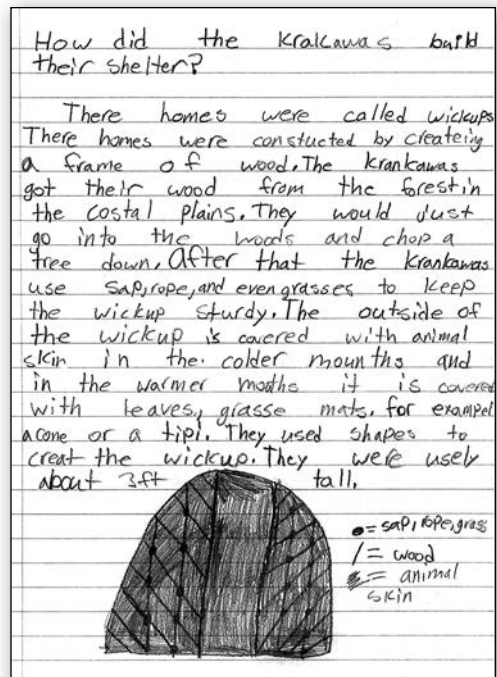 How did the Kralcawas build
their shelter?
There homes were called wickups
There homes were constucted by createing
a frame of wood. The Krankawas
got their wood from the forest in
the costal plains. They would just
go into the woods and chop a
tree down. After that the Krankawas
use sap, rope, and even grasses to keep
the wickup sturdy. The outside of
the wickup is covered with animal
skin in the colder mounths and
in the warmer moaths it is covered
with leaves, grasse mats. for exampel
a cone or a tipi. They used shapes to
creat the wickup. They were usely
about 3ft tall.
= sap, rope, grass
/ = wood
= animal
skin